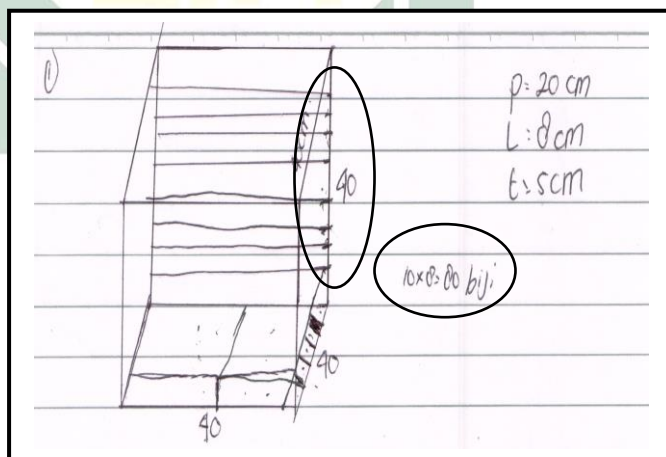 1)
p: 20 cm
L: 8 cm
t: 5 cm
40
10x8=80 biji
40
40